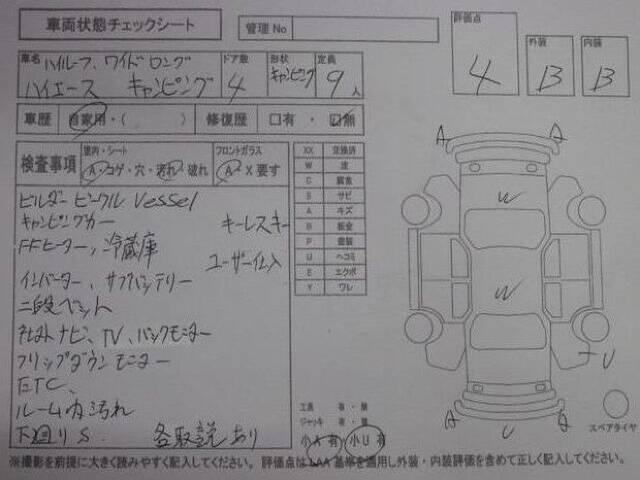 車両状態チェックシート
管理No
評価点 4
外装 B
内装 B
車名 ハイルーフ、ワイドロング
ハイエース キャンピング
ドア数 4
形状 キャンピング
定員 9人
車歴 自家用・( ) 修復歴 □有・☑無
検査事項
室内・シート
A コゲ・穴・汚れ 破れ
フロントガラス
A X要す
ビルダー ビークル Vessel
キャンピングカー キーレスキー
FFヒーター、冷蔵庫
ユーザー仕入
インバーター、サブバッテリー
二段ベット
社外ナビ、TV、バックモニター
フリップダウンモニター
ETC、
ルーム内汚れ
下廻りS. 各取説あり
XX 交換済
W 波
C 腐食
S サビ
A キズ
B 板金
P 塗装
U ヘコミ
E エクボ
Y ワレ
工具 有・無
ジャッキ 有・無
小A有 小U有
A A
W
W
U
A A
U
スペアタイヤ
※撮影を前提に大きく読みやすく記入してください。評価点はJAA基準を適用し外装・内装評価を含めて正しく記入してください。